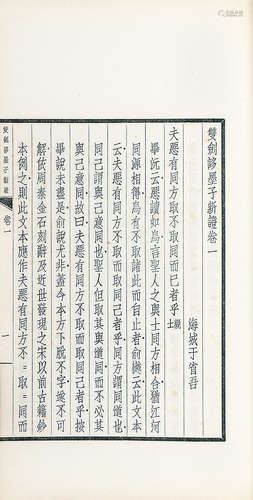 雙劍誃墨子新證卷一
海城于省吾
夫惡有同方取不取同而已者乎親士
畢沅云惡讀如烏言聖人之與士同方相合猶江河
同源相得烏有不取諸此而自止者俞樾云此文本
云夫惡有同方不取而取同己者乎同方謂同道也
同己謂與己意同也聖人但取其與道同而不必其
與己意同故曰夫惡有同方不取而取同己者乎按
畢說未盡是俞說尤非蓋今本方下脫不字遂不可
解依周秦金石刻辭及近世發現之宋以前古籍鈔
本例之則此文本應作夫惡有同方不＝取＝同而
雙劍誃墨子新證
卷一
一